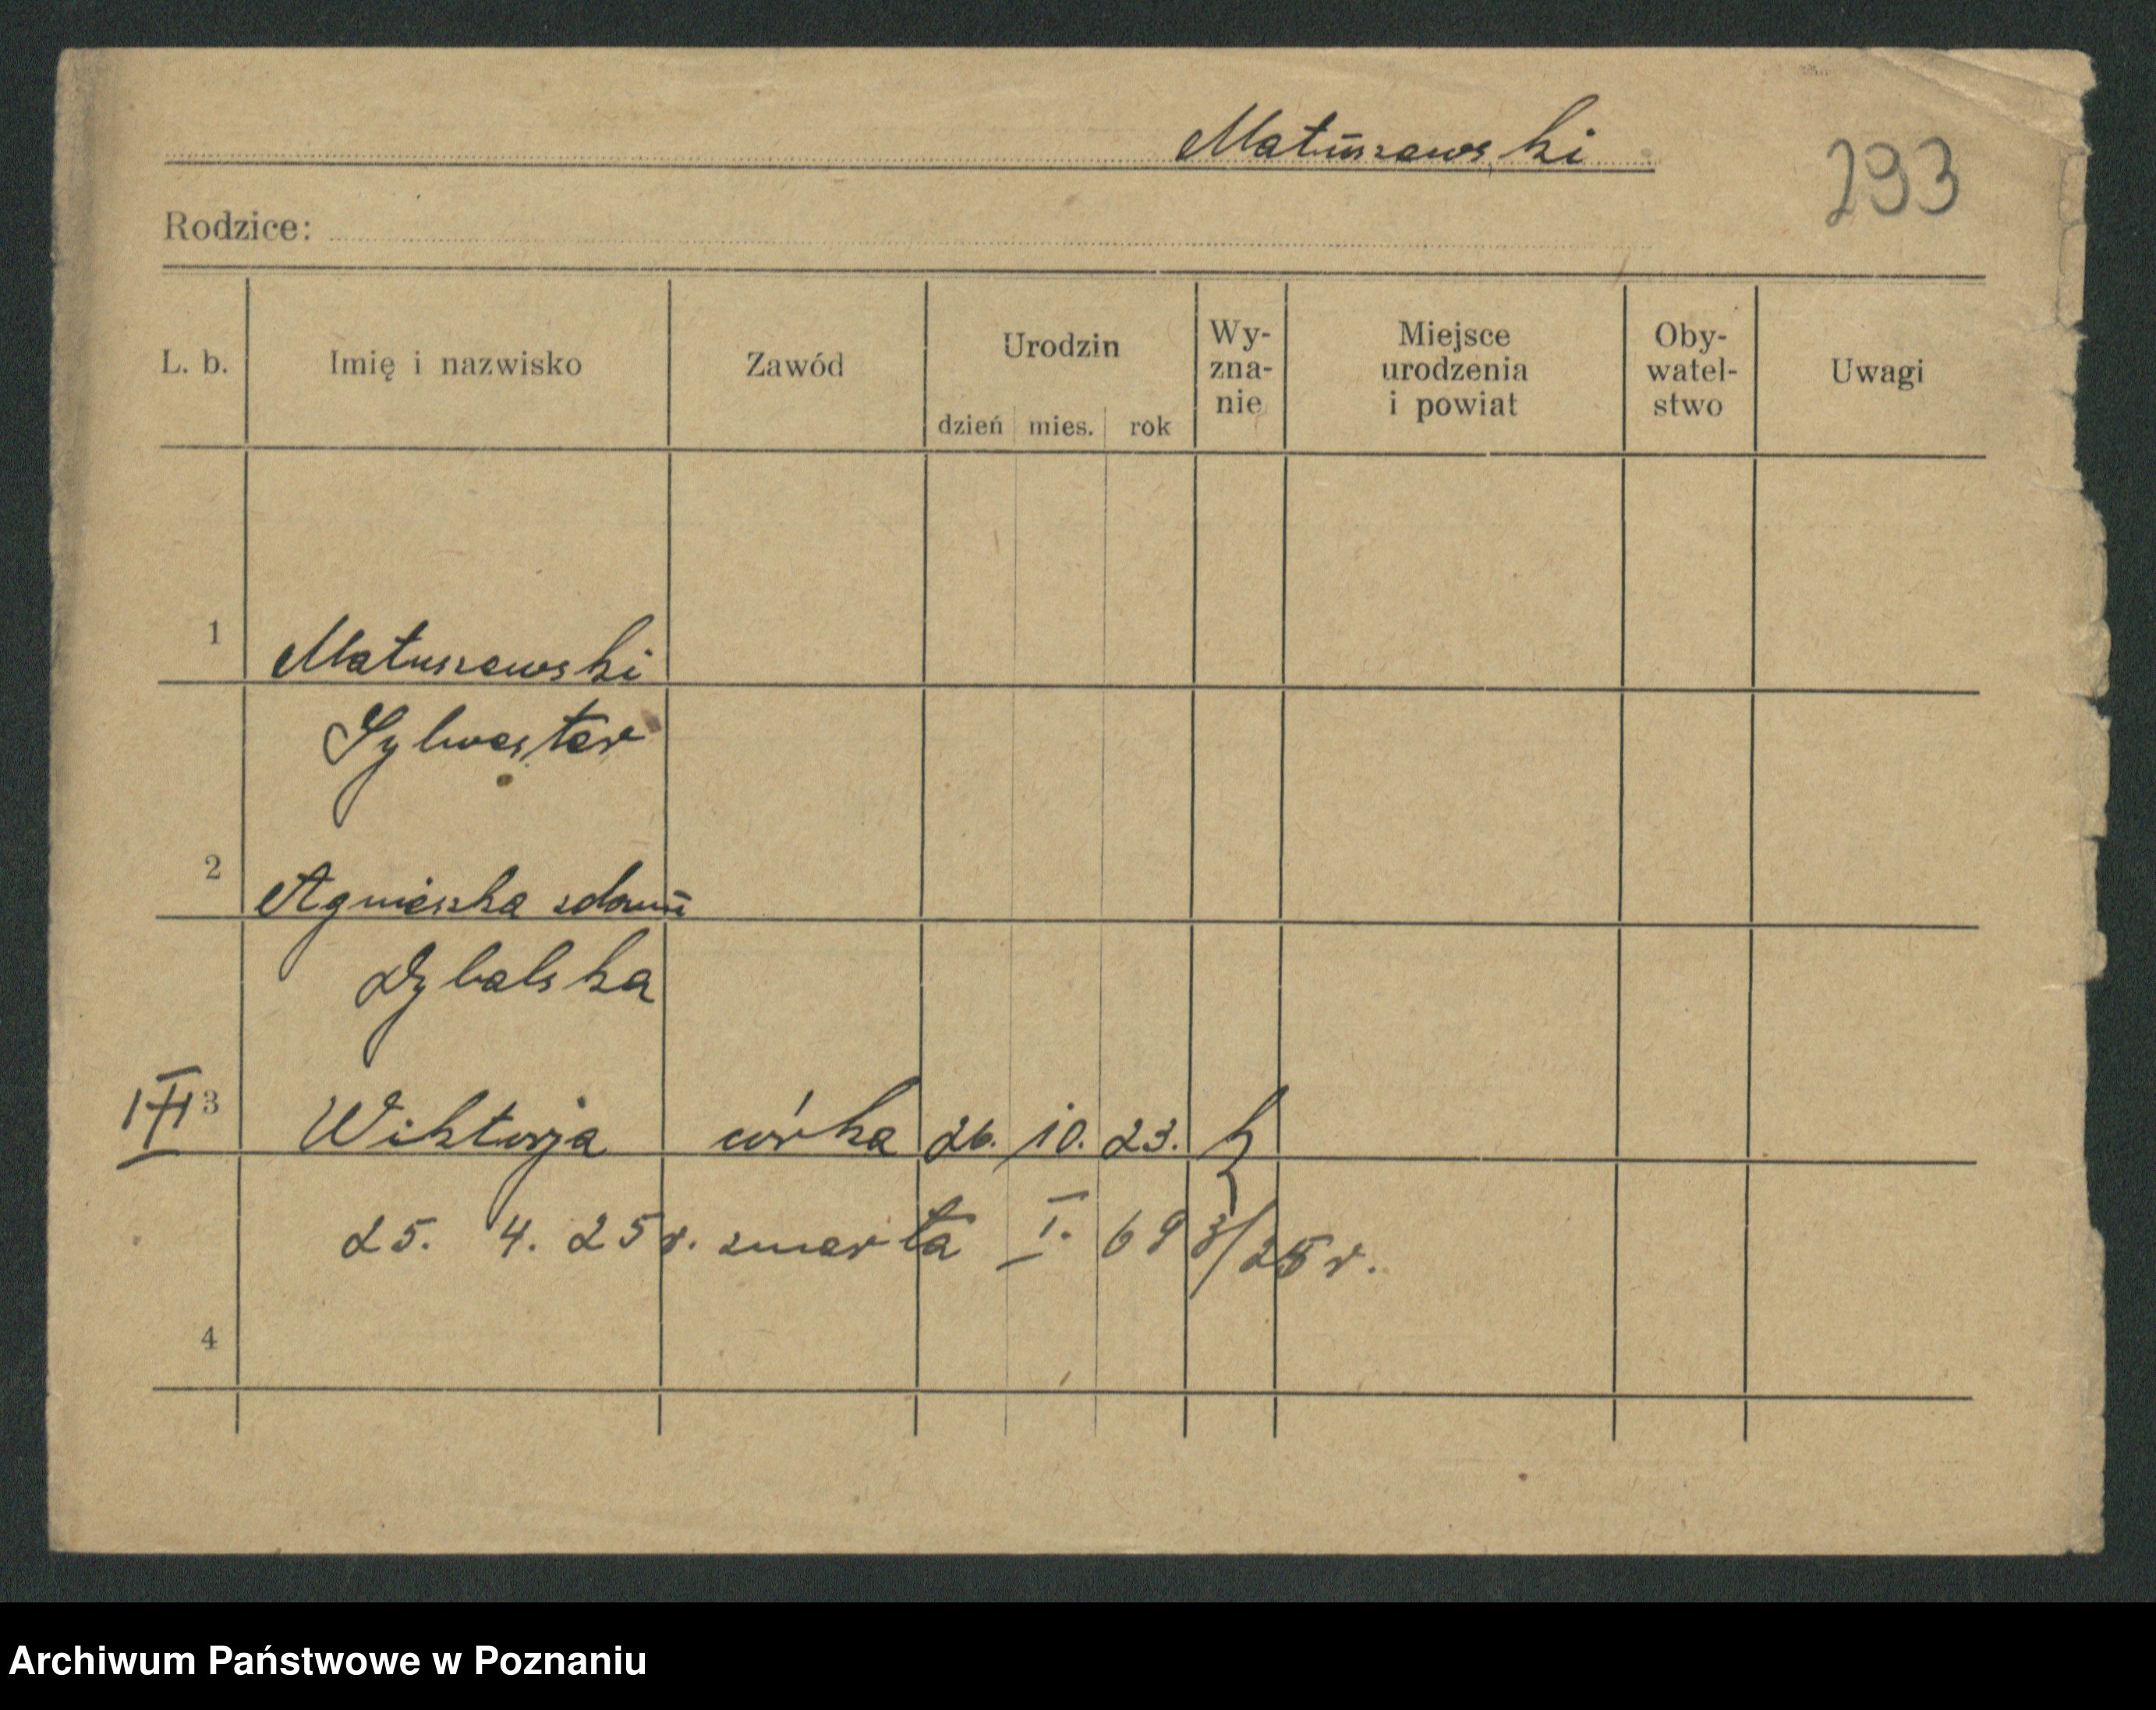 Matuszewski
293
Rodzice:
L. b. Imię i nazwisko Zawód Urodzin dzień mies. rok Wy-zna-nie Miejsce urodzenia i powiat Oby-watel-stwo Uwagi
1 Matuszewski
Sylwester
2 Agnieszka zdomu
Dybalska
III 3 Wiktorja córka 26. 10. 23. k
25. 4. 25 r. zmarła I. 693/25 r.
4
Archiwum Państwowe w Poznaniu